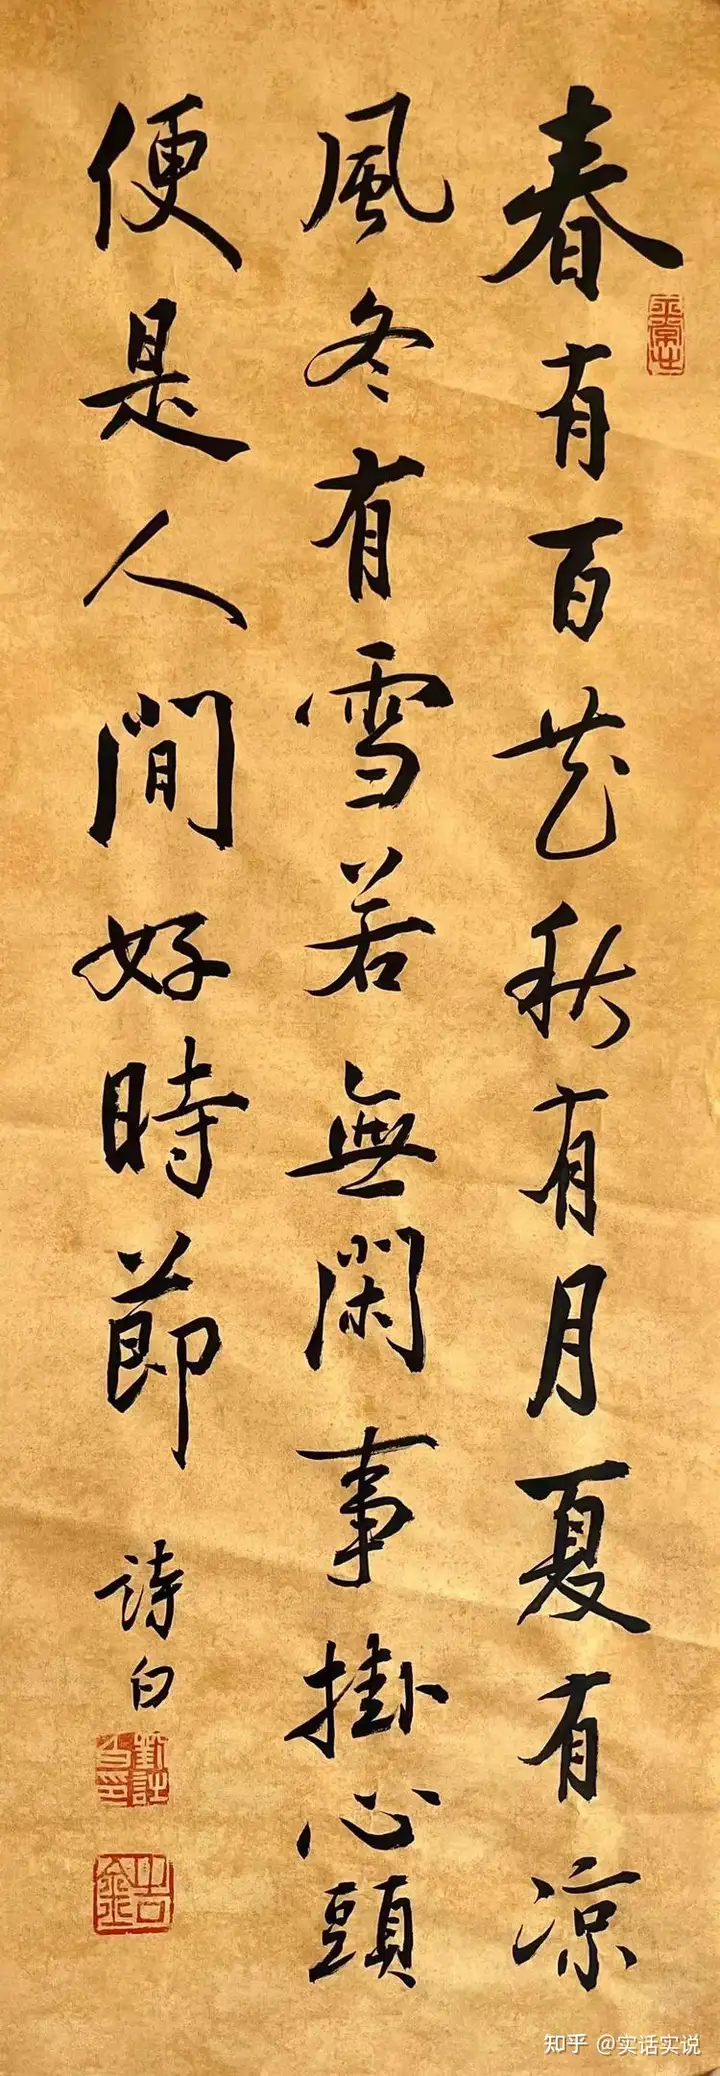 春有百花秋有月夏有凉
風冬有雪若無閑事掛心頭
便是人間好時節
詩白
知乎 @实话实说